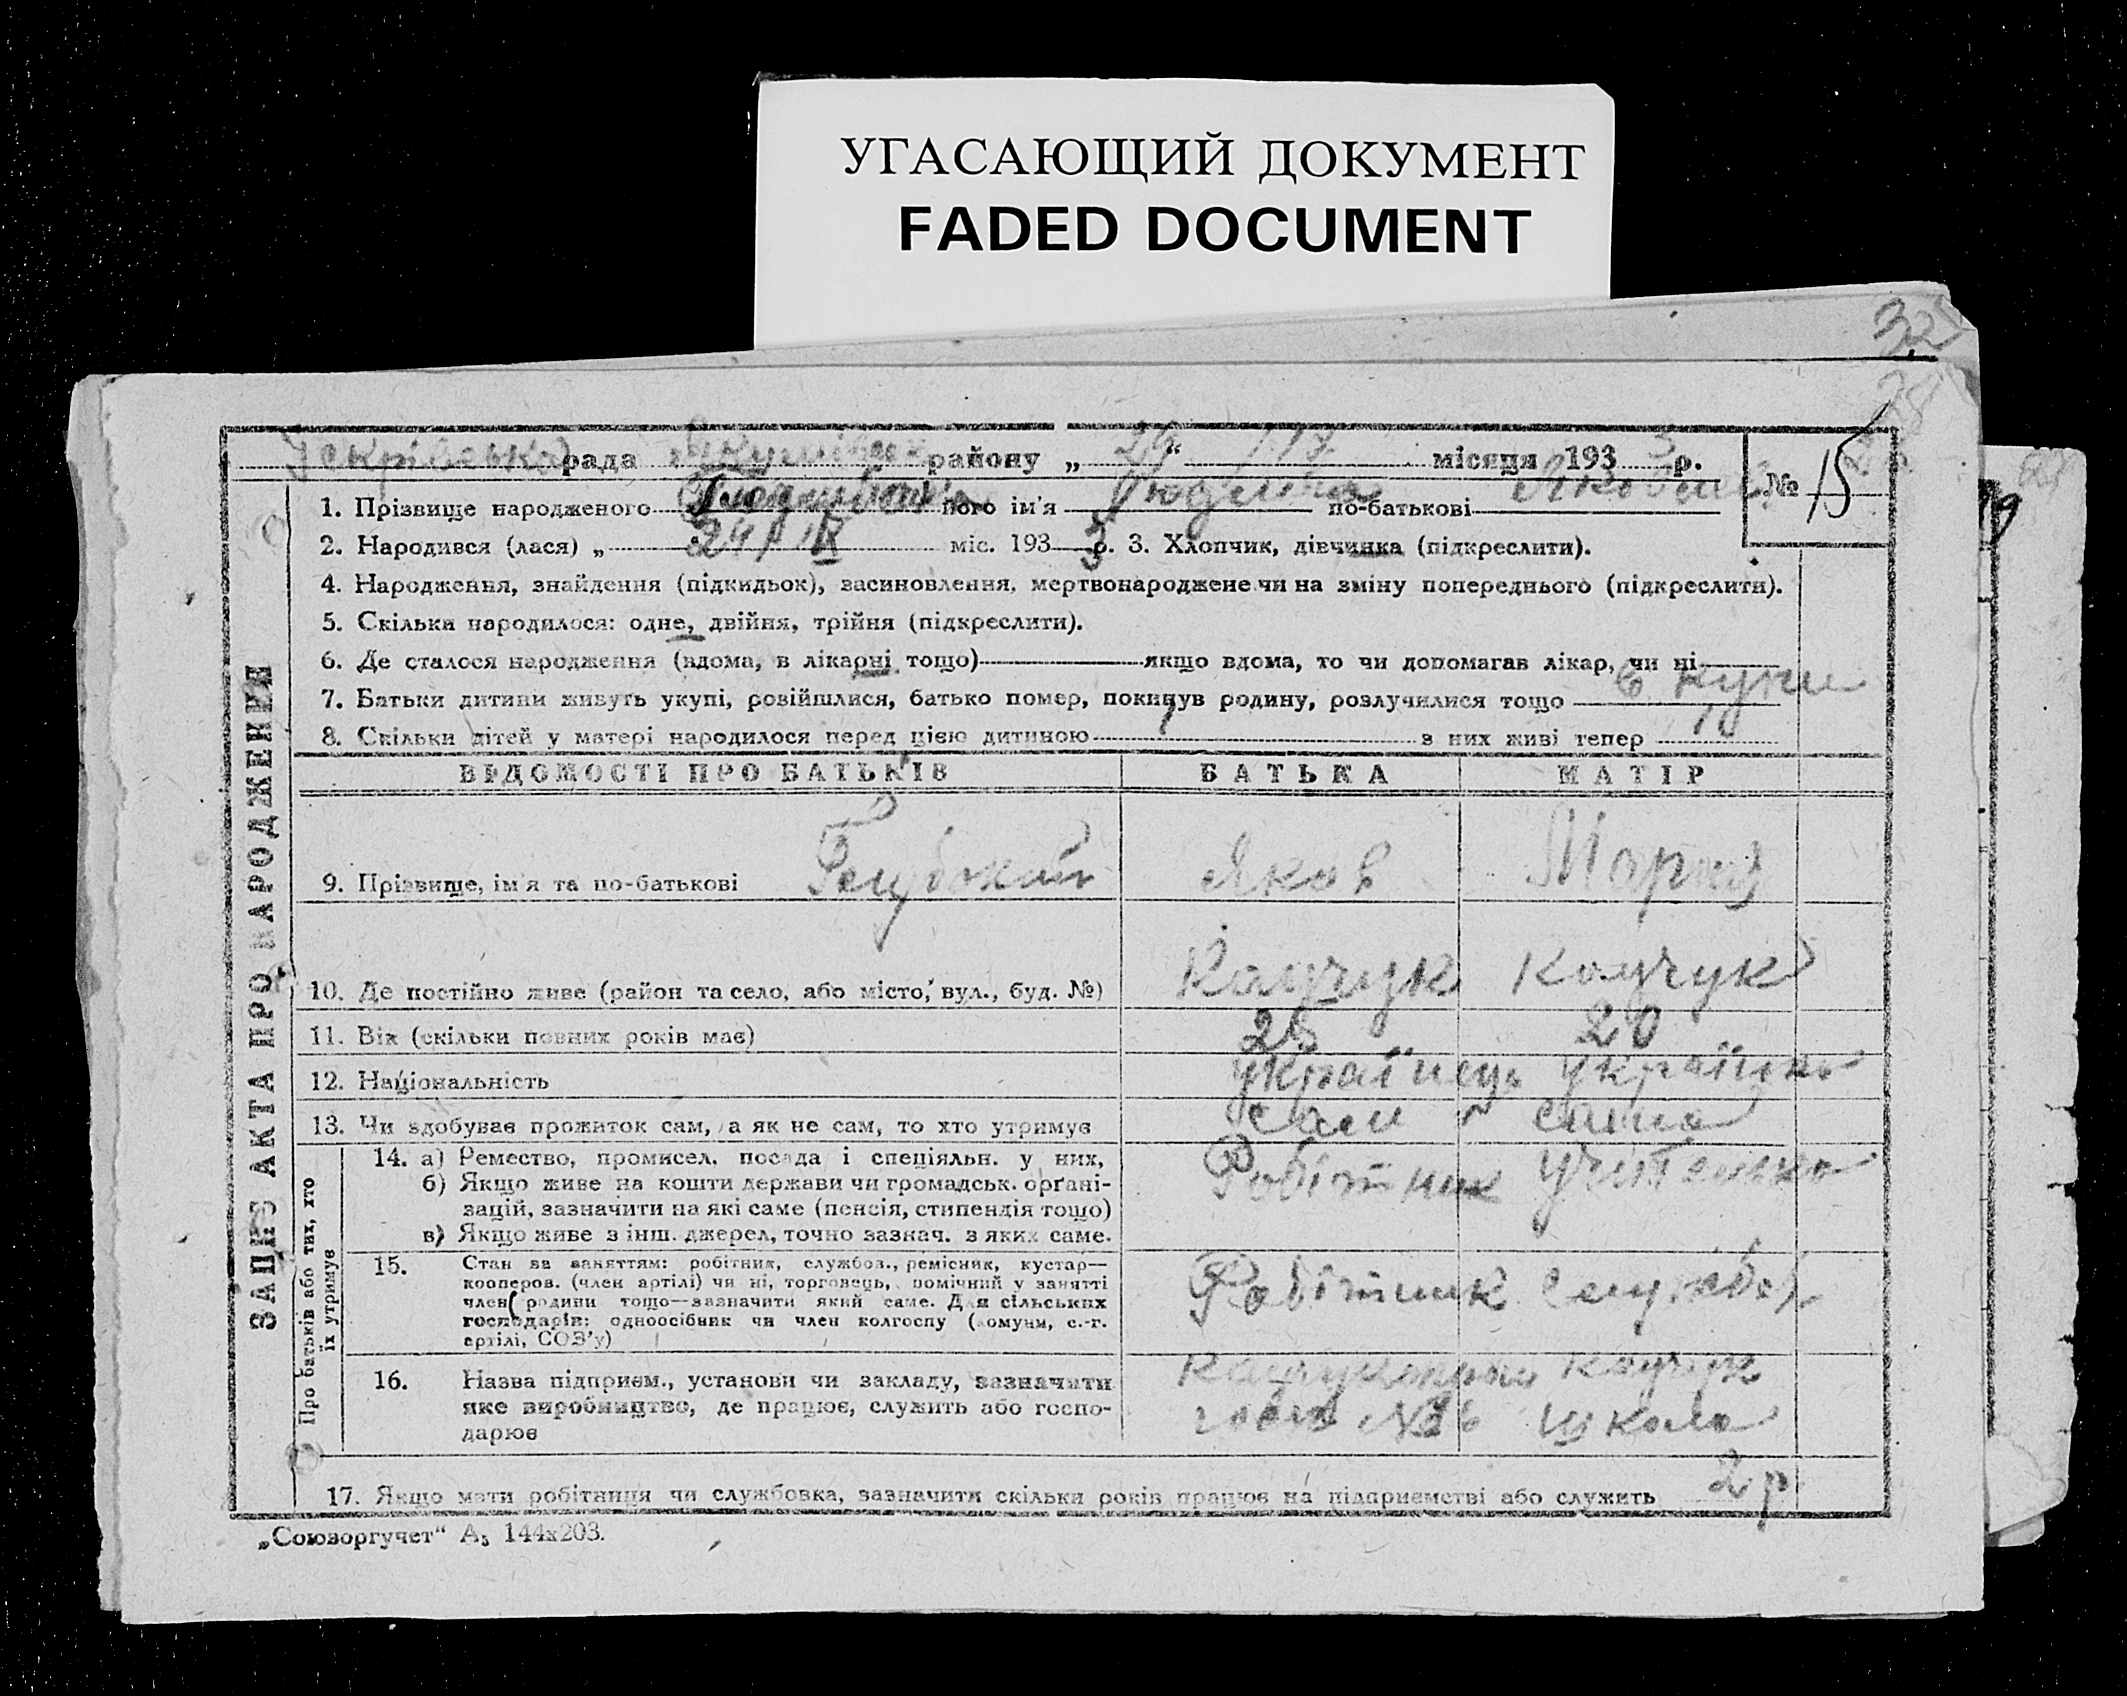 УГАСАЮЩИЙ ДОКУМЕНТ
FADED DOCUMENT
32
Іскрівська рада району „29“ місяця 1933 р.
№ 15
1. Прізвище народженого його ім'я Людмила по-батькові Яковна
2. Народився (лася) „ 24/ІХ міс. 1933 р. 3. Хлопчик, дівчинка (підкреслити).
4. Народження, знайдення (підкидьок), засиновлення, мертвонароджене чи на зміну попереднього (підкреслити).
5. Скільки народилося: одне, двійня, трійня (підкреслити).
6. Де сталося народження (вдома, в лікарні тощо) якщо вдома, то чи допомагав лікар, чи ні
7. Батьки дитини живуть укупі, розійшлися, батько помер, покинув родину, розлучилися тощо в купи
8. Скільки дітей у матері народилося перед цією дитиною 1 з них живі тепер 1
ВІДОМОСТІ ПРО БАТЬКІВ БАТЬКА МАТІР
9. Прізвище, ім'я та по-батькові Голубокий Яков Мария
10. Де постійно живе (район та село, або місто, вул., буд. №) Каучук Каучук
11. Вік (скільки повних років має) 28 20
12. Національність Українець Українка
13. Чи здобуває прожиток сам, а як не сам, то хто утримує сам сама
14. а) Ремество, промисел, посада і спеціяльн. у них, Робітник Учителька
б) Якщо живе на кошти держави чи громадськ. орґані-
зацій, зазначити на які саме (пенсія, стипендія тощо)
в) Якщо живе з інш. джерел, точно зазнач. з яких саме.
15. Стан за заняттям: робітник, службов., ремісник, кустар—
кооперов. (член артілі) чи ні, торговець, помічний у занятті
член родини тощо—зазначити який саме. Для сільських
господарів: одноосібник чи член колгоспу (комуни, с.-г.
артілі, СОЗ'у)
Робітник службов
16. Назва підприєм., установи чи закладу, зазначити Каучук
яке виробництво, де працює, служить або госпо- школа
дарює
17. Якщо мати робітниця чи службовка, зазначити скільки років працює на підприємстві або служить 2 р
ЗАПИС АКТА ПРО НАРОДЖЕННЯ
Про батьків або тих, хто
їх утримує
„Союзоргучет“ А₅ 144х203.